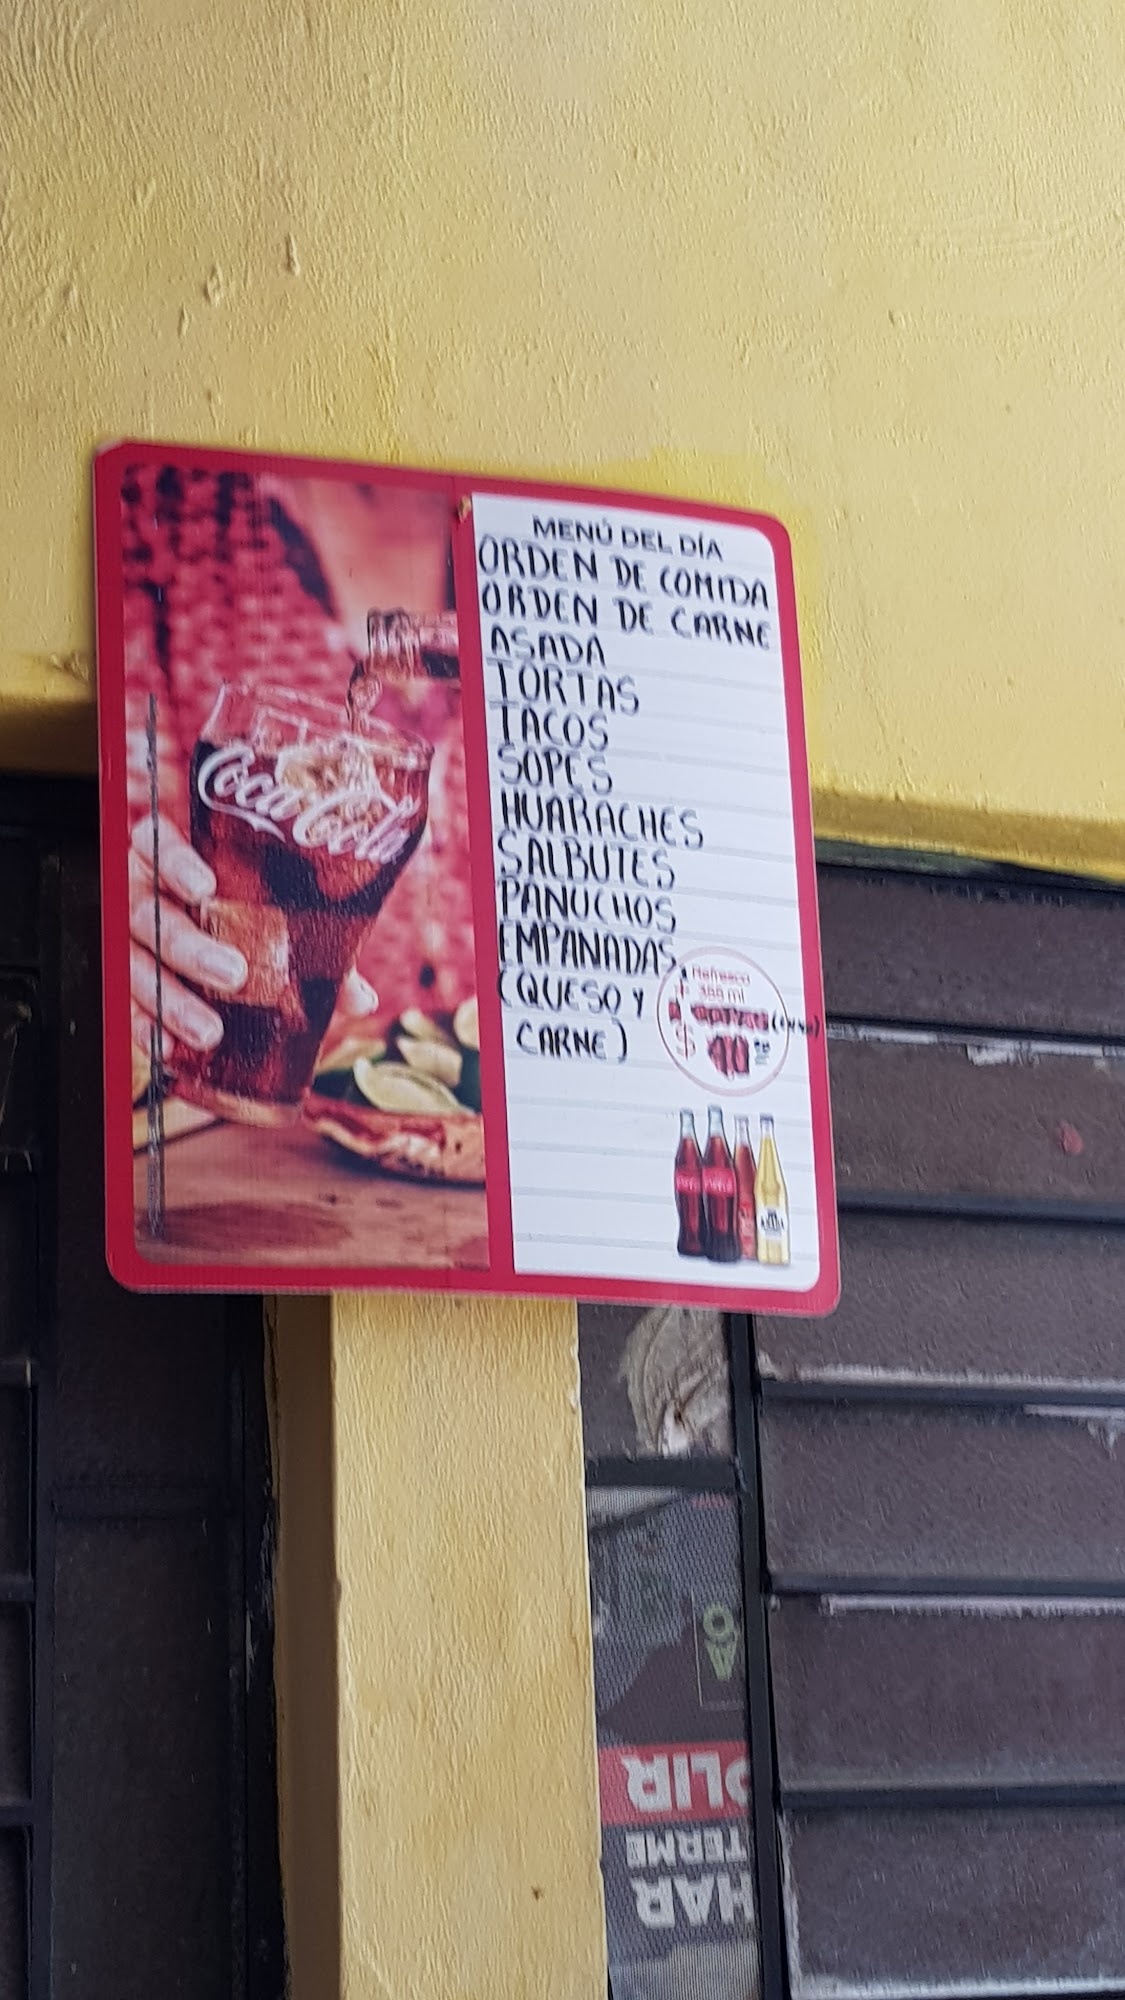 MENÚ DEL DÍA
ORDEN DE COMIDA
ORDEN DE CARNE
ASADA
TORTAS
TACOS
SOPES
HUARACHES
SALBUTES
PANUCHOS
EMPANADAS
(QUESO Y
CARNE)
Refresco
355 ml
$
Coca-Cola
OLIR
TERME
HAR